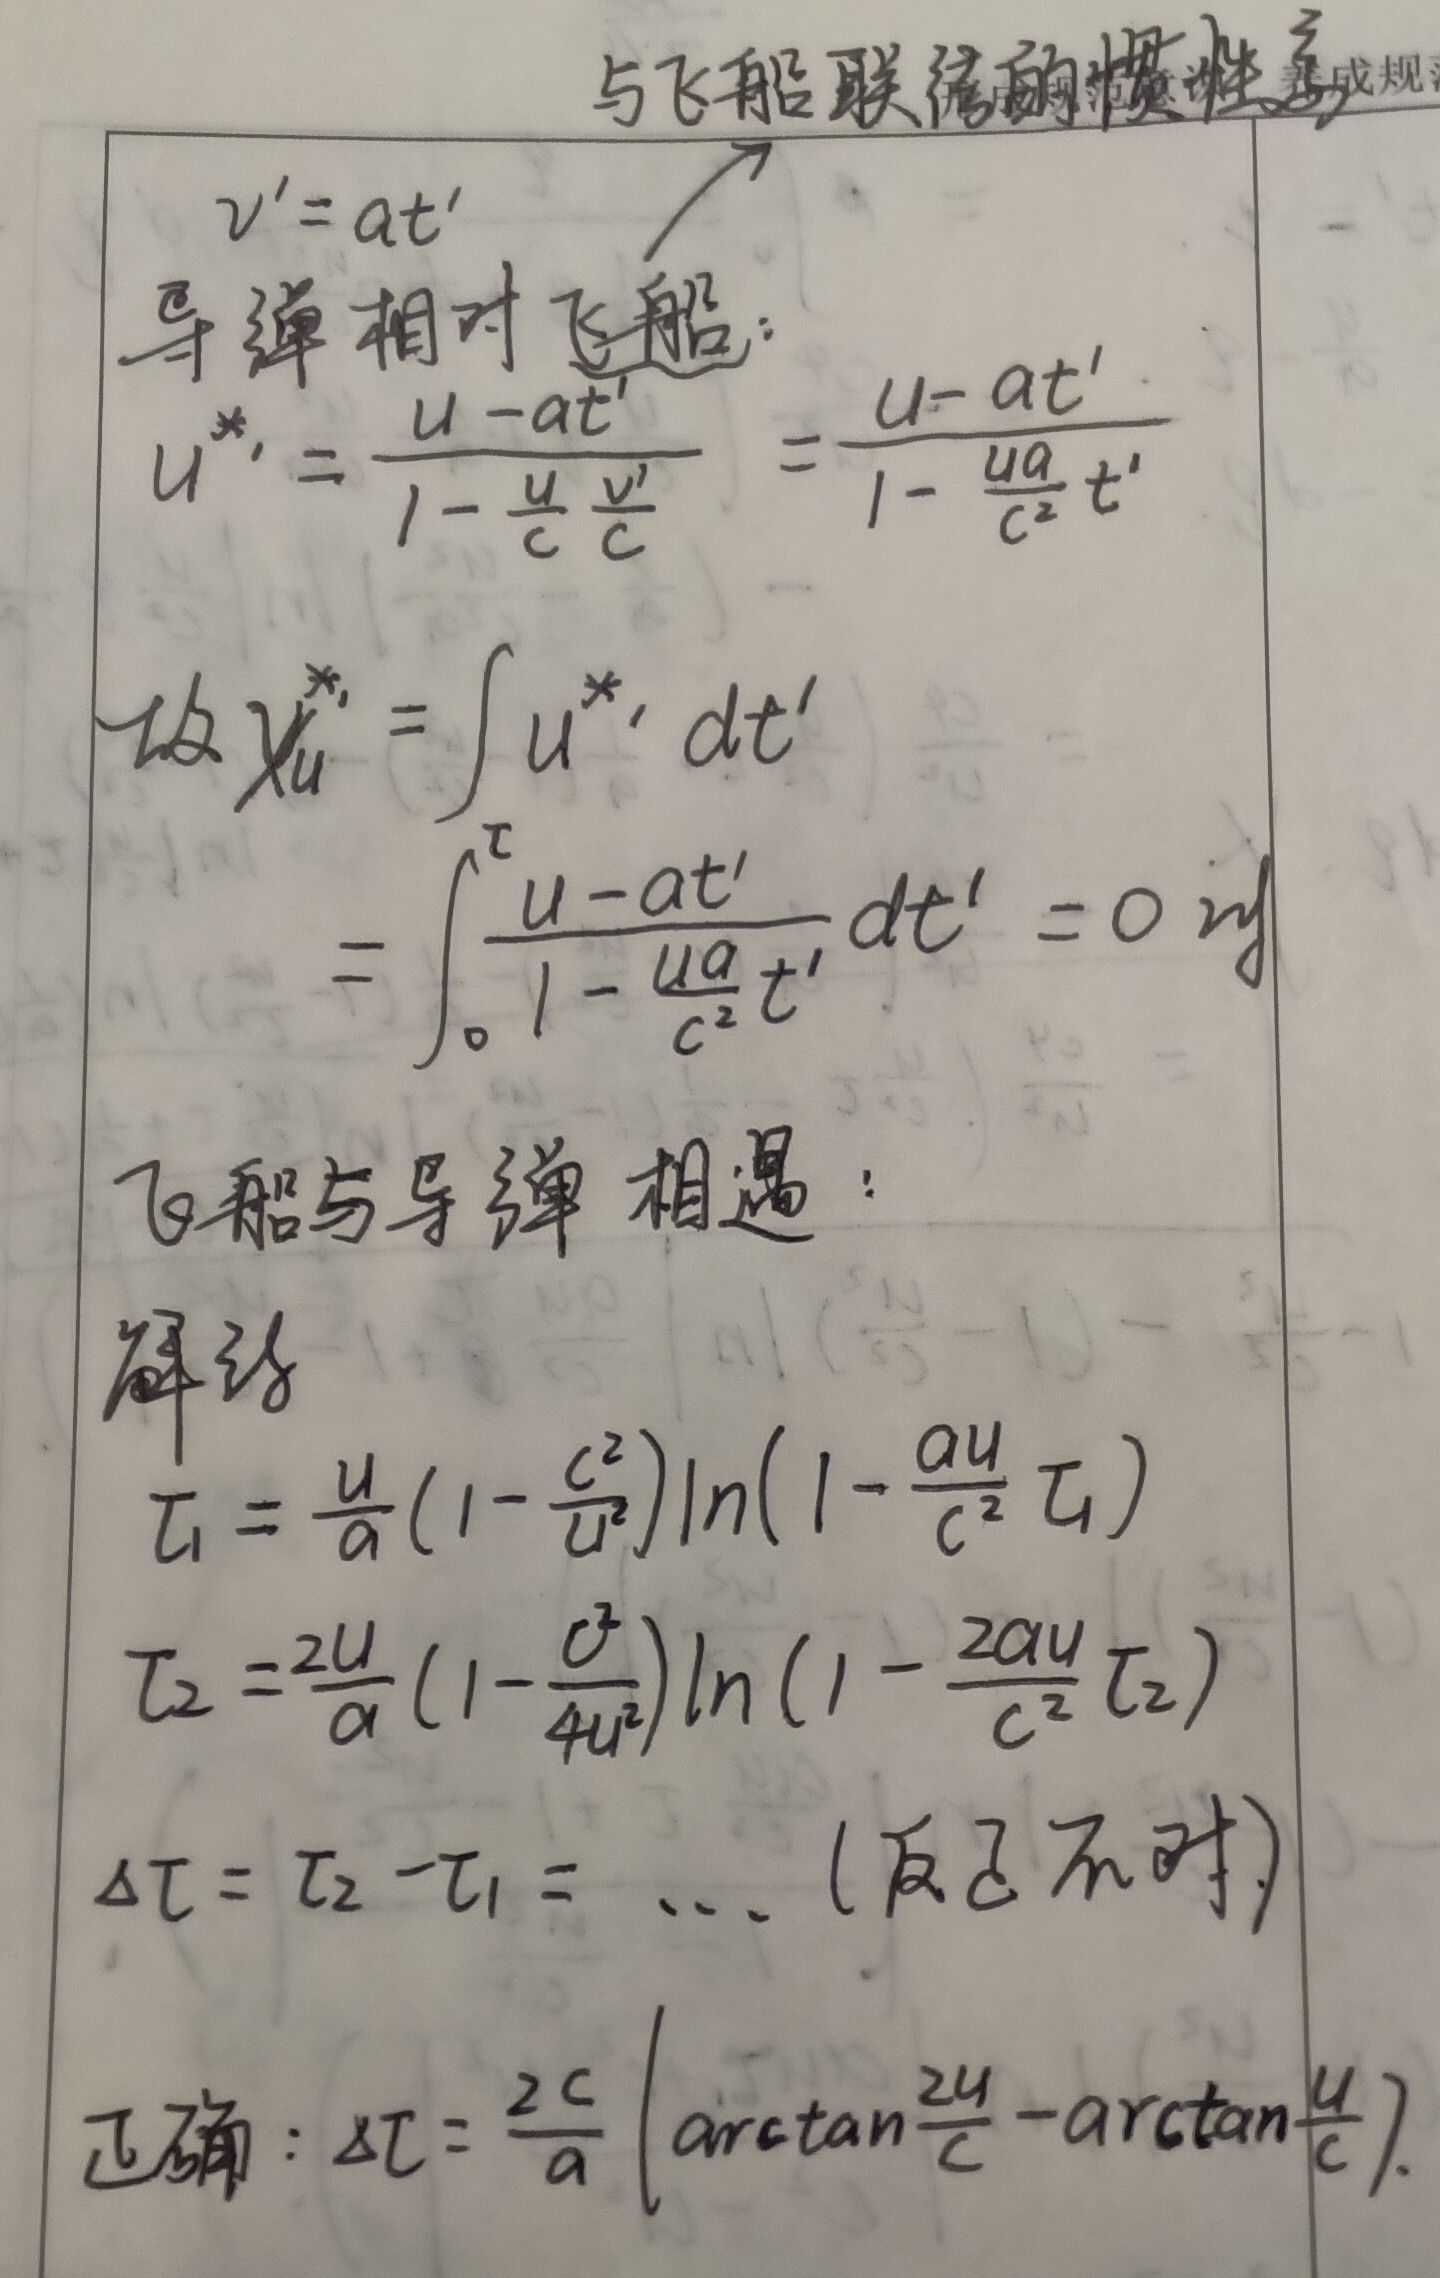 与飞船联结的惯性系
养成规范
v' = at'
导弹相对飞船:
u*' = \frac{u - at'}{1 - \frac{u}{c}\frac{v'}{c}} = \frac{u - at'}{1 - \frac{ua}{c^2}t'}
故 x_u*' = ∫ u*' dt'
= ∫_0^τ \frac{u - at'}{1 - \frac{ua}{c^2}t'} dt' = 0 时
飞船与导弹相遇:
解得
τ_1 = \frac{u}{a}(1 - \frac{c^2}{u^2}) ln(1 - \frac{au}{c^2}τ_1)
τ_2 = \frac{2u}{a}(1 - \frac{c^2}{4u^2}) ln(1 - \frac{2au}{c^2}τ_2)
Δτ = τ_2 - τ_1 = ... (反正不对)
正确: Δτ = \frac{2c}{a}(arctan\frac{2u}{c} - arctan\frac{u}{c}).